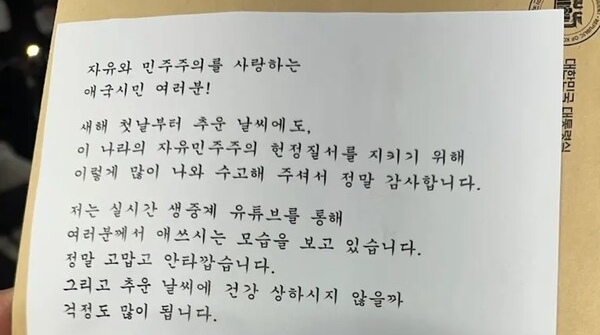 자유와 민주주의를 사랑하는
애국시민 여러분!
새해 첫날부터 추운 날씨에도,
이 나라의 자유민주주의 헌정질서를 지키기 위해
이렇게 많이 나와 수고해 주셔서 정말 감사합니다.
저는 실시간 생중계 유튜브를 통해
여러분께서 애쓰시는 모습을 보고 있습니다.
정말 고맙고 안타깝습니다.
그리고 추운 날씨에 건강 상하시지 않을까
걱정도 많이 됩니다.
대한민국 대통령실